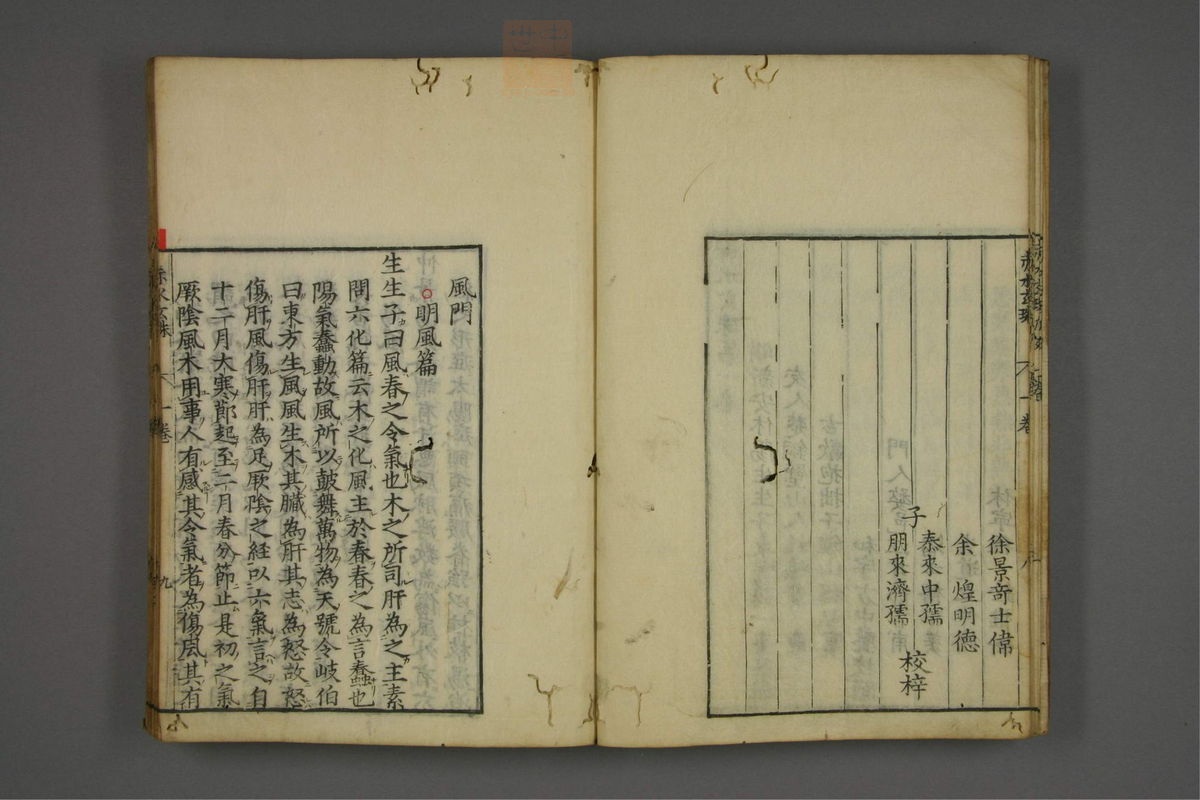 徐景奇士偉
余煌明德
泰來中孺
子
朋來濟孺
校梓
赤水玄珠
一卷
八
風門
明風篇
生生子曰風春之令氣也木之所司肝為之主素
問六化篇云木之化風主於春春之為言蠢也
陽氣蠢動故風所以鼓舞萬物為天號令岐伯
曰東方生風風生木其臟為肝其志為怒故怒
傷肝風傷肝肝為足厥陰之經以六氣言之自
十二月大寒節起至二月春分節止是初之氣
厥陰風木用事人有感其令氣者為傷風其有
赤水玄珠
一卷
九